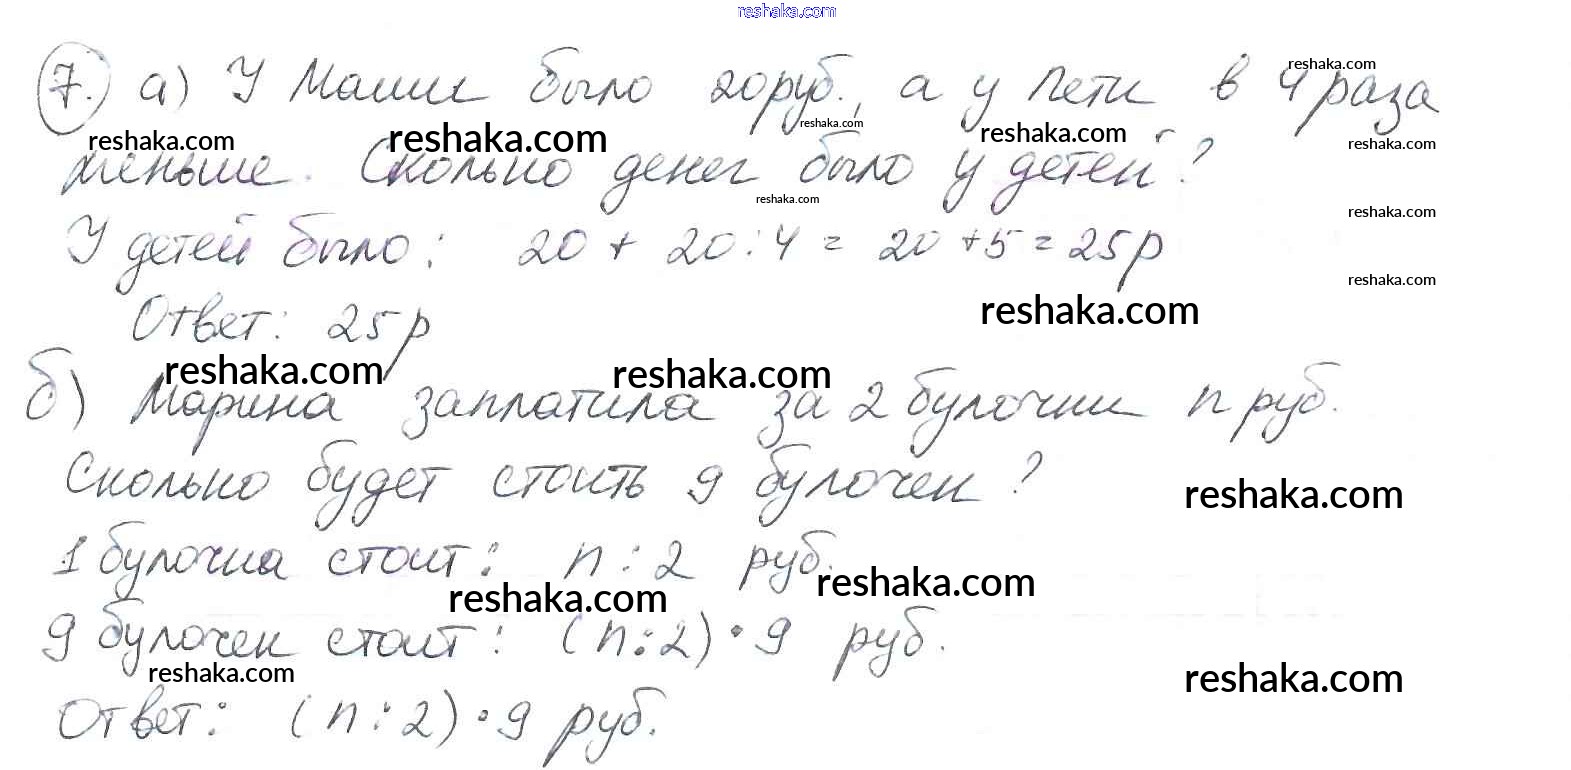 reshaka.com
7. а) У Маши было 20 руб., а у Пети в 4 раза
reshaka.com
reshaka.com reshaka.com reshaka.com reshaka.com reshaka.com
меньше. Сколько денег было у детей?
reshaka.com
reshaka.com
У детей было: 20 + 20 : 4 = 20 + 5 = 25 р
reshaka.com
reshaka.com
Ответ: 25 р
reshaka.com reshaka.com
б) Марина заплатила за 2 булочки n руб.
Сколько будет стоить 9 булочек?
reshaka.com
1 булочка стоит: n : 2 руб.
reshaka.com reshaka.com
9 булочек стоит: (n : 2) • 9 руб.
reshaka.com reshaka.com
Ответ: (n : 2) • 9 руб.